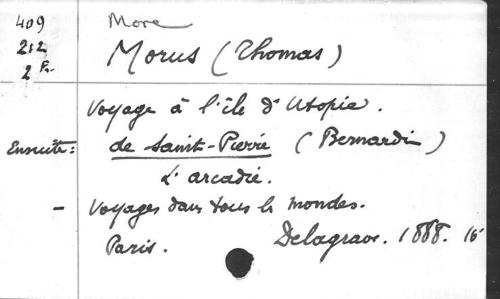 409 More
212 Morus (Thomas)
2 Fr.
Voyage à l'île d'Utopie.
Ensuite: de Saint-Pierre (Bernardin)
L'arcadie.
- Voyages dans tous les mondes.
Paris. Delagrave. 1888. 16°